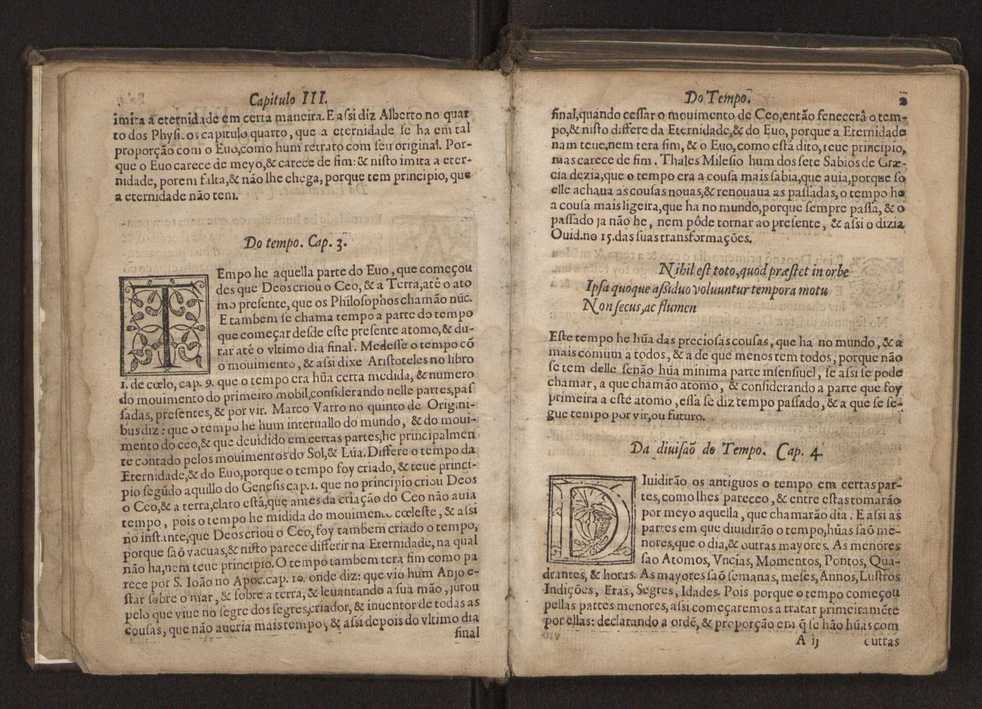 Capitulo III.
imita a eternidade em certa maneira. E assi diz Alberto no quar
to dos Physi. os capitulo quarto, que a eternidade se ha em tal
proporção com o Euo, como hum retrato com seu original. Por-
que o Euo carece de meyo, & carece de fim: & nisto imita a eter-
nidade, porem falta, & não lhe chega, porque tem principio, que
a eternidade não tem.
Do tempo. Cap. 3.
TEmpo he aquella parte do Euo, que começou
des que Deos criou o Ceo, & a Terra, até o ato
mo presente, que os Philosophos chamão nũc.
E tambem se chama tempo a parte do tempo
que começar desde este presente atomo, & du-
rar atè o vltimo dia final. Medesse o tempo cõ
o mouimento, & assi dixe Aristoteles no libro
1. de cœlo, cap. 9. que o tempo era hũa certa medida, & numero
do mouimento do primeiro mobil, considerando nelle partes, pas
sadas, presentes, & por vir. Marco Varro no quinto de Origini-
bus diz: que o tempo he hum interuallo do mundo, & do moui-
mento do ceo, & que deuidido em certas partes, he principalmen
te contado pelos mouimentos do Sol, & Lũa. Differe o tempo da
Eternidade, & do Euo, porque o tempo foy criado, & teue princi-
pio segũdo aquillo do Genesis cap. 1. que no principio criou Deos
o Ceo, & a terra, claro está, que antes da criação do Ceo não auia
tempo, pois o tempo he midida do mouimento cœleste, & assi
no instante, que Deos criou o Ceo, foy tambem criado o tempo,
porque saõ vacuas, & nisto parece differir na Eternidade, na qual
não ha, nem teue principio. O tempo tambem tera fim como pa
rece por S. Ioão no Apoc. cap. 10. onde diz: que vio hum Anjo e-
star sobre o mar, & sobre a terra, & leuantando a sua mão, jurou
pelo que viue no segre dos segres, criador, & inuentor de todas as
cousas, que não aueria mais tempo, & assi depois do vltimo dia
final
Do Tempo.
2
final, quando cessar o mouimento do Ceo, então fenecerà o tem-
po, & nisto differe da Eternidade, & do Euo, porque a Eternidade
nam teue, nem tera fim, & o Euo, como está dito, teue principio,
mas carece de fim. Thales Milesio hum dos sete Sabios de Græ-
cia dezia, que o tempo era a cousa mais sabia, que auia, porque so
elle achaua as cousas nouas, & renouaua as passadas, o tempo he
a cousa mais ligeira, que ha no mundo, porque sempre passa, & o
passado ja não he, nem pôde tornar ao presente, & assi o dizia
Ouid. no 15. das suas transformações.
Nihil est toto, quod præstet in orbe
Ipsa quoque assiduo voluuntur tempora motu
Non secus, ac flumen
Este tempo he hũa das preciosas cousas, que ha no mundo, & a
mais comum a todos, & a de que menos tem todos, porque não
se tem delle senão hũa minima parte insensiuel, se assi se pode
chamar, a que chamão atomo, & considerando a parte que foy
primeira a este atomo, essa se diz tempo passado, & a que se se-
gue tempo por vir, ou futuro.
Da diuisaõ do Tempo. Cap. 4.
DIuidirão os antiguos o tempo em certas par-
tes, como lhes pareceo, & entre estas tomarão
por meyo aquella, que chamarão dia. E assi as
partes em que diuidirão o tempo, hũas saõ me-
nores, que o dia, & outras mayores. As menores
sao Atomos, Vncias, Momentos, Pontos, Qua-
drantes, & horas. As mayores saõ semanas, meses, Annos, Lustros
Indições, Eras, Segres, Idades. Pois porque o tempo começou
pellas partes menores, assi começaremos a tratar primeiramẽte
por ellas: declarando a ordẽ, & proporção em q̃ se hão hũas com
A ij
outras